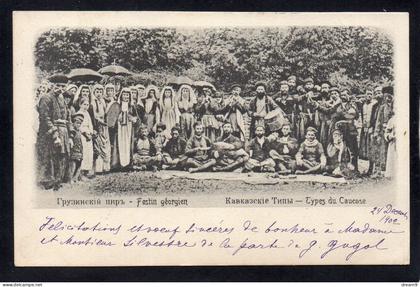 Грузинскій пиръ - Festin géorgien
Кавказскіе Типы - Types du Caucase
24
1902
Felicitations et voeux sincères de bonheur à Madame
et Monsieur Silvestre de la part de J. Gogol